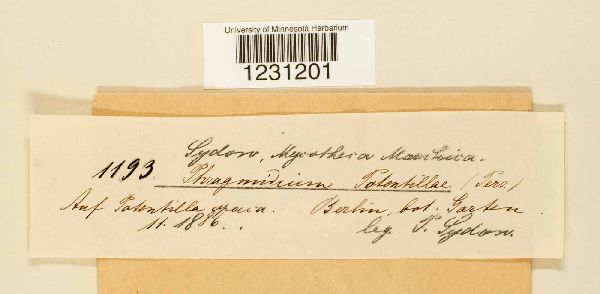 University of Minnesota Herbarium
1231201
Sydow, Mycotheca Marchica.
1193 Phragmidium Potentillae (Pers.)
Auf Potentilla Berlin, bot. Garten
11. 1886. leg. P. Sydow.